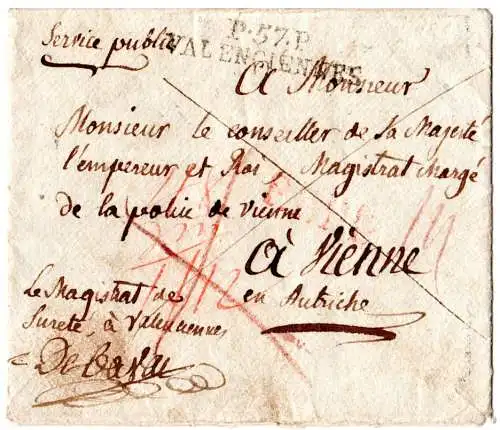 P.57.P.
VALENCIENNES
Service public
A Monsieur
Monsieur le conseiller de Sa Majesté
l'empereur et Roi, Magistrat chargé
de la police de vienne
à Vienne
en Autriche
Le Magistrat de
Sureté, à Valenciennes